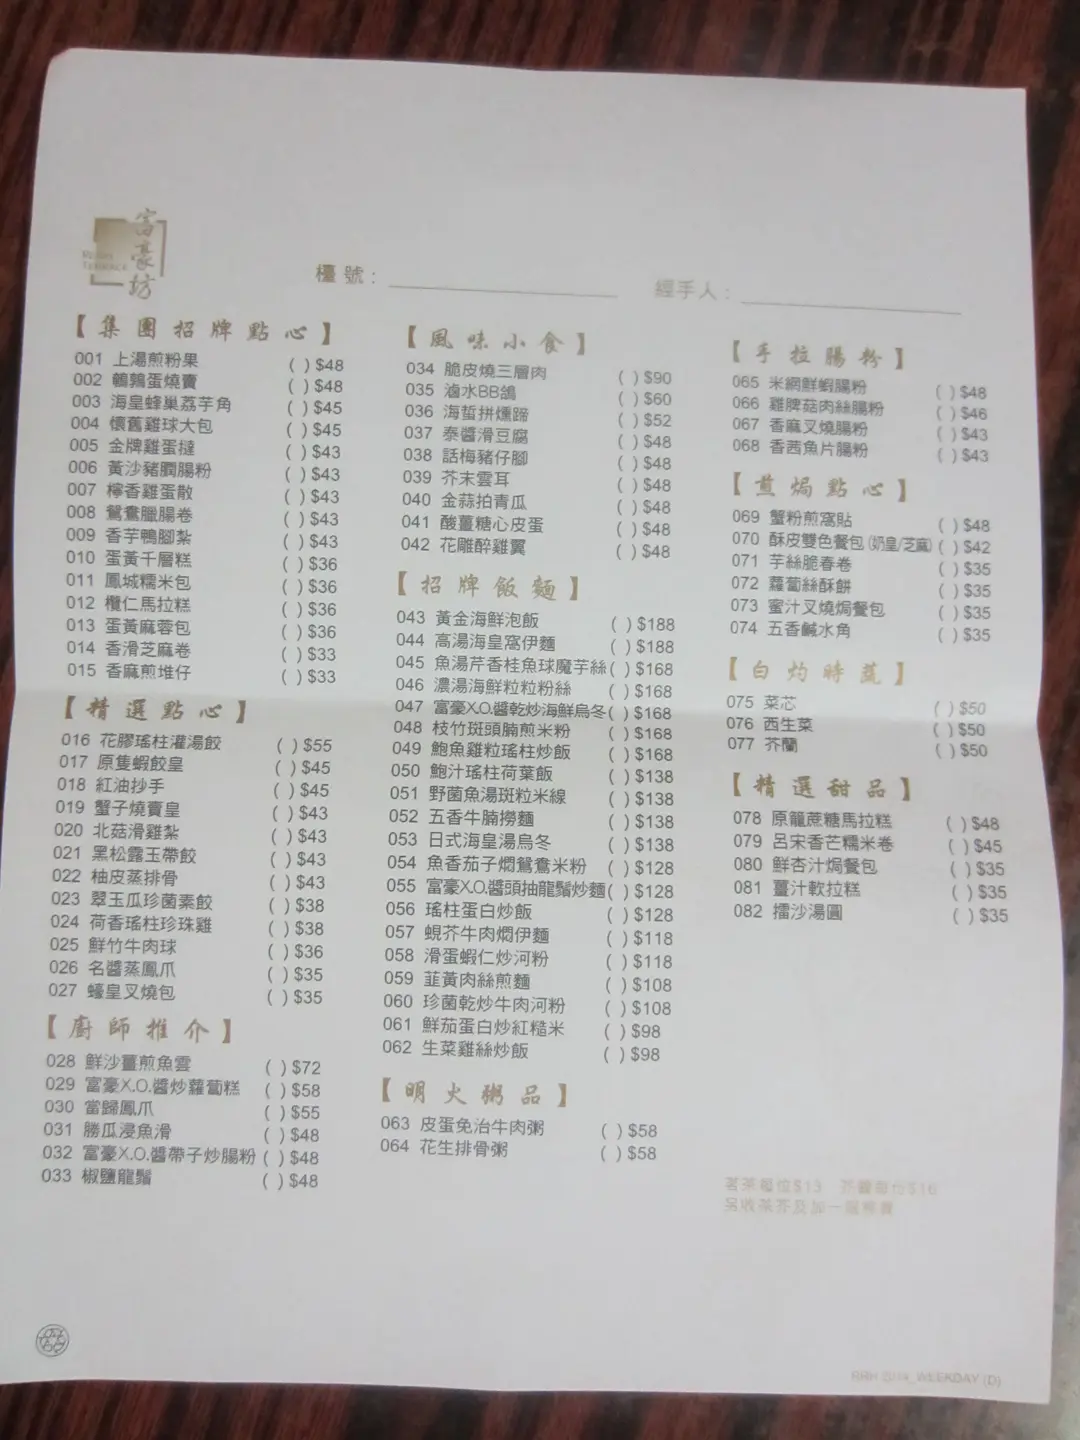 富豪坊
檯號：
經手人：
【集團招牌點心】
001 上湯煎粉果 ( ) $48
002 鵪鶉蛋燒賣 ( ) $48
003 海皇蜂巢荔芋角 ( ) $45
004 懷舊雞球大包 ( ) $45
005 金牌雞蛋撻 ( ) $43
006 黃沙豬膶腸粉 ( ) $43
007 檸香雞蛋散 ( ) $43
008 鴛鴦臘腸卷 ( ) $43
009 香芋鴨腳紮 ( ) $43
010 蛋黃千層糕 ( ) $36
011 鳳城糯米包 ( ) $36
012 欖仁馬拉糕 ( ) $36
013 蛋黃麻蓉包 ( ) $36
014 香滑芝麻卷 ( ) $33
015 香麻煎堆仔 ( ) $33
【精選點心】
016 花膠瑤柱灌湯餃 ( ) $55
017 原隻蝦餃皇 ( ) $45
018 紅油抄手 ( ) $45
019 蟹子燒賣皇 ( ) $43
020 北菇滑雞紮 ( ) $43
021 黑松露玉帶餃 ( ) $43
022 柚皮蒸排骨 ( ) $43
023 翠玉瓜珍菌素餃 ( ) $38
024 荷香瑤柱珍珠雞 ( ) $38
025 鮮竹牛肉球 ( ) $36
026 名醬蒸鳳爪 ( ) $35
027 蠔皇叉燒包 ( ) $35
【廚師推介】
028 鮮沙薑煎魚雲 ( ) $72
029 富豪X.O.醬炒蘿蔔糕 ( ) $58
030 當歸鳳爪 ( ) $55
031 勝瓜浸魚滑 ( ) $48
032 富豪X.O.醬帶子炒腸粉 ( ) $48
033 椒鹽龍鬚 ( ) $48
【風味小食】
034 脆皮燒三層肉 ( ) $90
035 滷水BB鴿 ( ) $60
036 海蜇拼燻蹄 ( ) $52
037 泰醬滑豆腐 ( ) $48
038 話梅豬仔腳 ( ) $48
039 芥末雲耳 ( ) $48
040 金蒜拍青瓜 ( ) $48
041 酸薑糖心皮蛋 ( ) $48
042 花雕醉雞翼 ( ) $48
【招牌飯麵】
043 黃金海鮮泡飯 ( ) $188
044 高湯海皇窩伊麵 ( ) $188
045 魚湯芹香桂魚球魔芋絲 ( ) $168
046 濃湯海鮮粒粒粉絲 ( ) $168
047 富豪X.O.醬乾炒海鮮烏冬 ( ) $168
048 枝竹斑頭腩煎米粉 ( ) $168
049 鮑魚雞粒瑤柱炒飯 ( ) $168
050 鮑汁瑤柱荷葉飯 ( ) $138
051 野菌魚湯斑粒米線 ( ) $138
052 五香牛腩撈麵 ( ) $138
053 日式海皇湯烏冬 ( ) $138
054 魚香茄子燜鴛鴦米粉 ( ) $128
055 富豪X.O.醬頭抽龍鬚炒麵 ( ) $128
056 瑤柱蛋白炒飯 ( ) $128
057 蜆芥牛肉燜伊麵 ( ) $118
058 滑蛋蝦仁炒河粉 ( ) $118
059 韮黃肉絲煎麵 ( ) $108
060 珍菌乾炒牛肉河粉 ( ) $108
061 鮮茄蛋白炒紅糙米 ( ) $98
062 生菜雞絲炒飯 ( ) $98
【明火粥品】
063 皮蛋免治牛肉粥 ( ) $58
064 花生排骨粥 ( ) $58
【手拉腸粉】
065 米網鮮蝦腸粉 ( ) $48
066 雞髀菇肉絲腸粉 ( ) $46
067 香麻叉燒腸粉 ( ) $43
068 香茜魚片腸粉 ( ) $43
【煎焗點心】
069 蟹粉煎窩貼 ( ) $48
070 酥皮雙色餐包 (奶皇/芝麻) ( ) $42
071 芋絲脆春卷 ( ) $35
072 蘿蔔絲酥餅 ( ) $35
073 蜜汁叉燒焗餐包 ( ) $35
074 五香鹹水角 ( ) $35
【白灼時蔬】
075 菜芯 ( ) $50
076 西生菜 ( ) $50
077 芥蘭 ( ) $50
【精選甜品】
078 原籠蔗糖馬拉糕 ( ) $48
079 呂宋香芒糯米卷 ( ) $45
080 鮮杏汁焗餐包 ( ) $35
081 薑汁軟拉糕 ( ) $35
082 擂沙湯圓 ( ) $35
茗茶每位$13 芥醬每份$16
另收茶芥及加一服務費
RRH 2014_WEEKDAY (D)